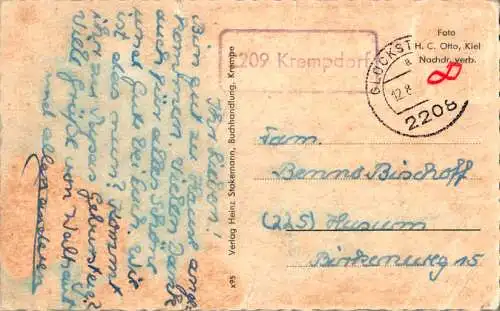 Ihr Lieben!
Bin gut zu Hause ange-
kommen. Vielen Dank
auch für alles Schöne
und Gute bei Euch. Wie
ist das nun? Kommt
Ihr zu Geburtstag?
Viele Grüße von
und allen anderen
Verlag Heinz Stakemann, Buchhandlung, Krempe
x95
2209 Krempdorf
GLÜCKST
a
12.8
2208
Foto
H. C. Otto, Kiel
Nachdr. verb.
Fam.
Benno Bischoff
(225) Husum
Birkenweg 15